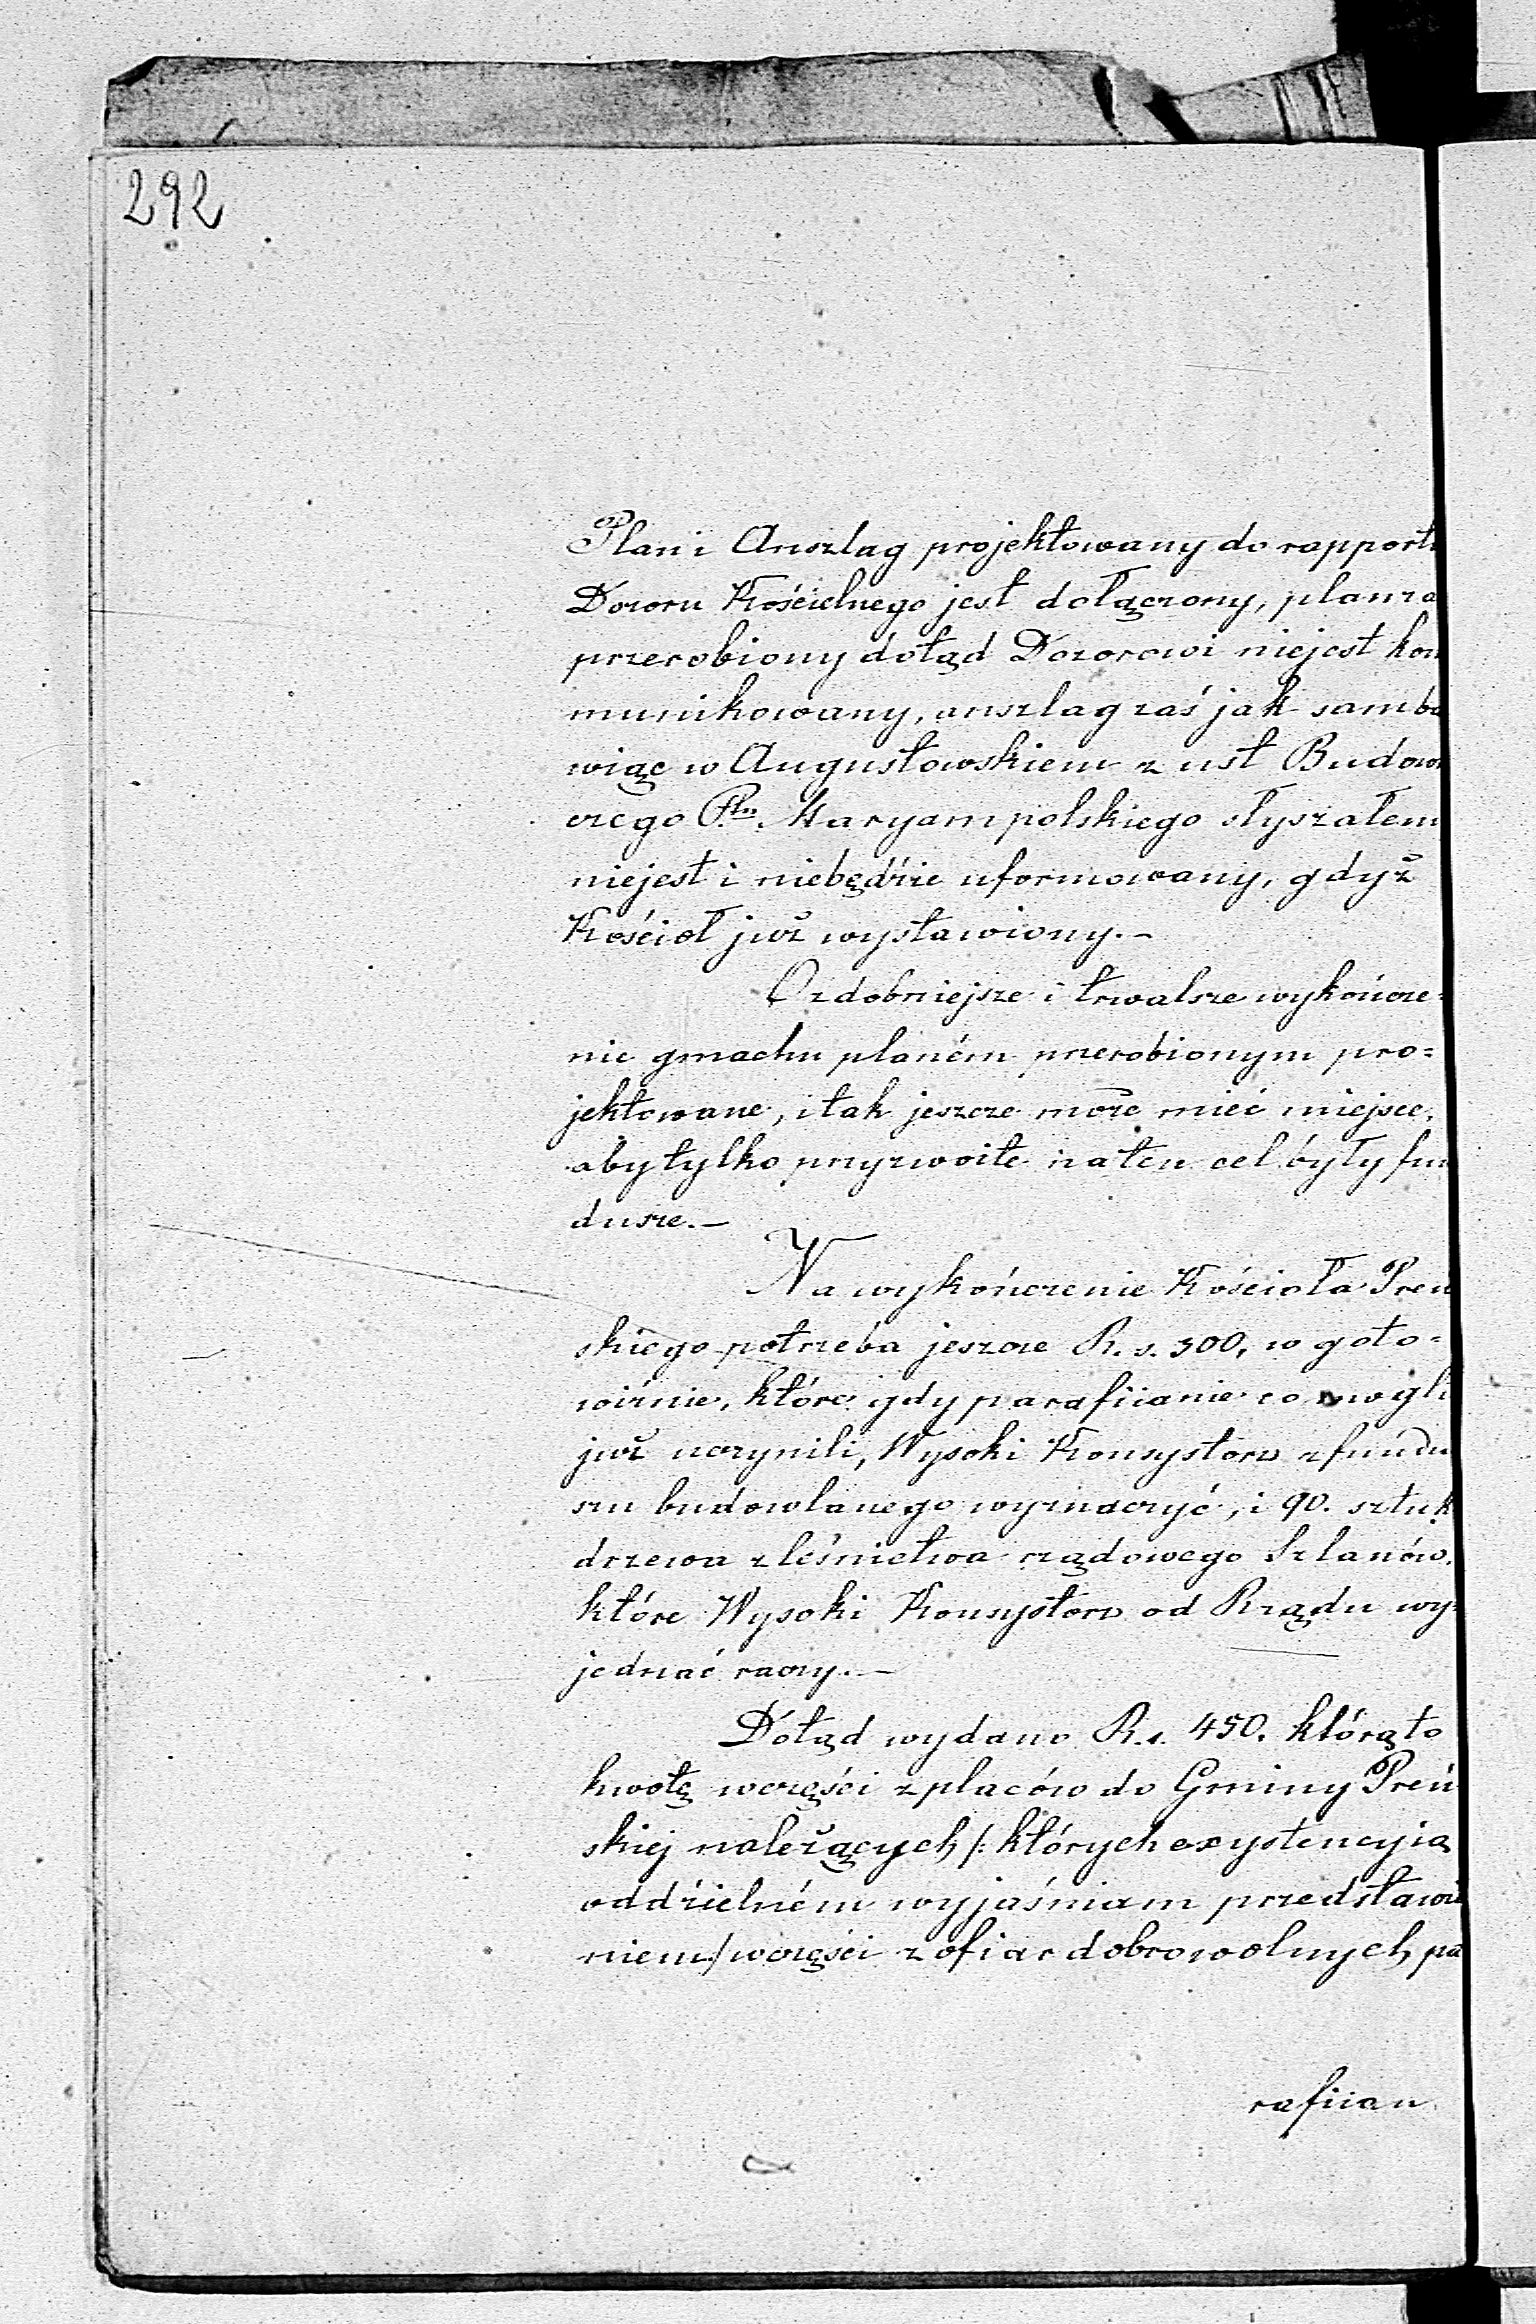 292
Plan i Anszlag projektowany do rapportu
Dozoru Kościelnego jest dołączony, plan za
przerobiony dotąd Dozorowi niejest kom
munikowany, anszlag zaś jak sam ba
wiąc w Augustowskiem z ust Budown
czego Ptu. Maryampolskiego słyszałem
niejest i niebędzie uformowany, gdyż
Kościoł już wystawiony.–
Ozdobniejsze i trwalsze wykończe=
nie gmachu planém przerobionym pro=
jektowane, i tak jeszcze może mieć miejsce,
aby tylko przyzwoite na ten cel były fun
dusze.–
Na wykończenie Kościoła Preń
skiego potrzeba jeszcze R. s. 300, w goto=
wiźnie, które gdy parafiianie co mogli
już uczynili, Wysoki Konsystorz z fundu
szu budowlanego wyznaczyć, i 90. sztuk
drzewa z leśnictwa rządowego Szlanów,
które Wysoki Konsystorz od Rządu wy=
jednać raczy.–
Dotąd wydano R. s. 450. którą to
kwotę wczęści z placów do Gminy Preń
skiej należących /: których exystencyią
oddzielném wyjaśniam przedstawie
niem/ wczęści z ofiar dobrowolnych pa
rafiian